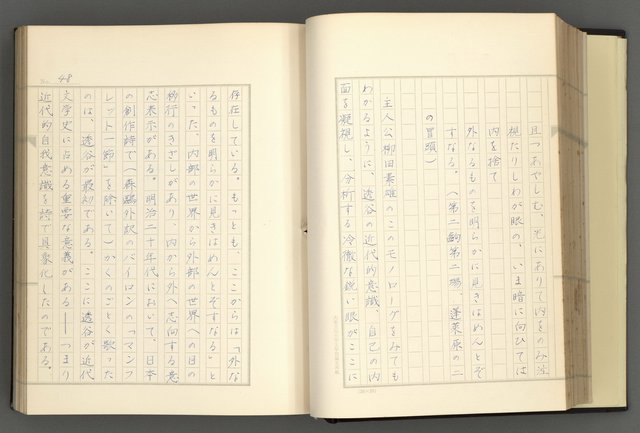 且つあやしむ、光にありて内をのみ注
視たりしわが眼の、いま暗に向ひては
内を捨て
外なるものを明らかに見きはめんとぞ
すなる。（第二齣第二場、蓬莱原の二
の冒頭）
主人公柳田素雄のこのモノローグをみても
わかるように、透谷の近代的意識、自己の内
面を凝視し、分析する冷徹な鋭い眼がここに
48
存在している。もっとも、ここからは「外な
るものを明らかに見きはめんとぞすなる」と
いった、内部の世界から外部の世界への目の
移行のきざしがあり、内から外へ志向する意
志表示がある。明治二十年代において、日本
の創作詩で（森鷗外訳のバイロンの「マンフ
レット一節」を除いて）かくのごとく歌った
のは、透谷が最初である。ここに透谷が近代
文学史に占める重要な意義がある――つまり
近代的自我意識を詩で具象化したのである。